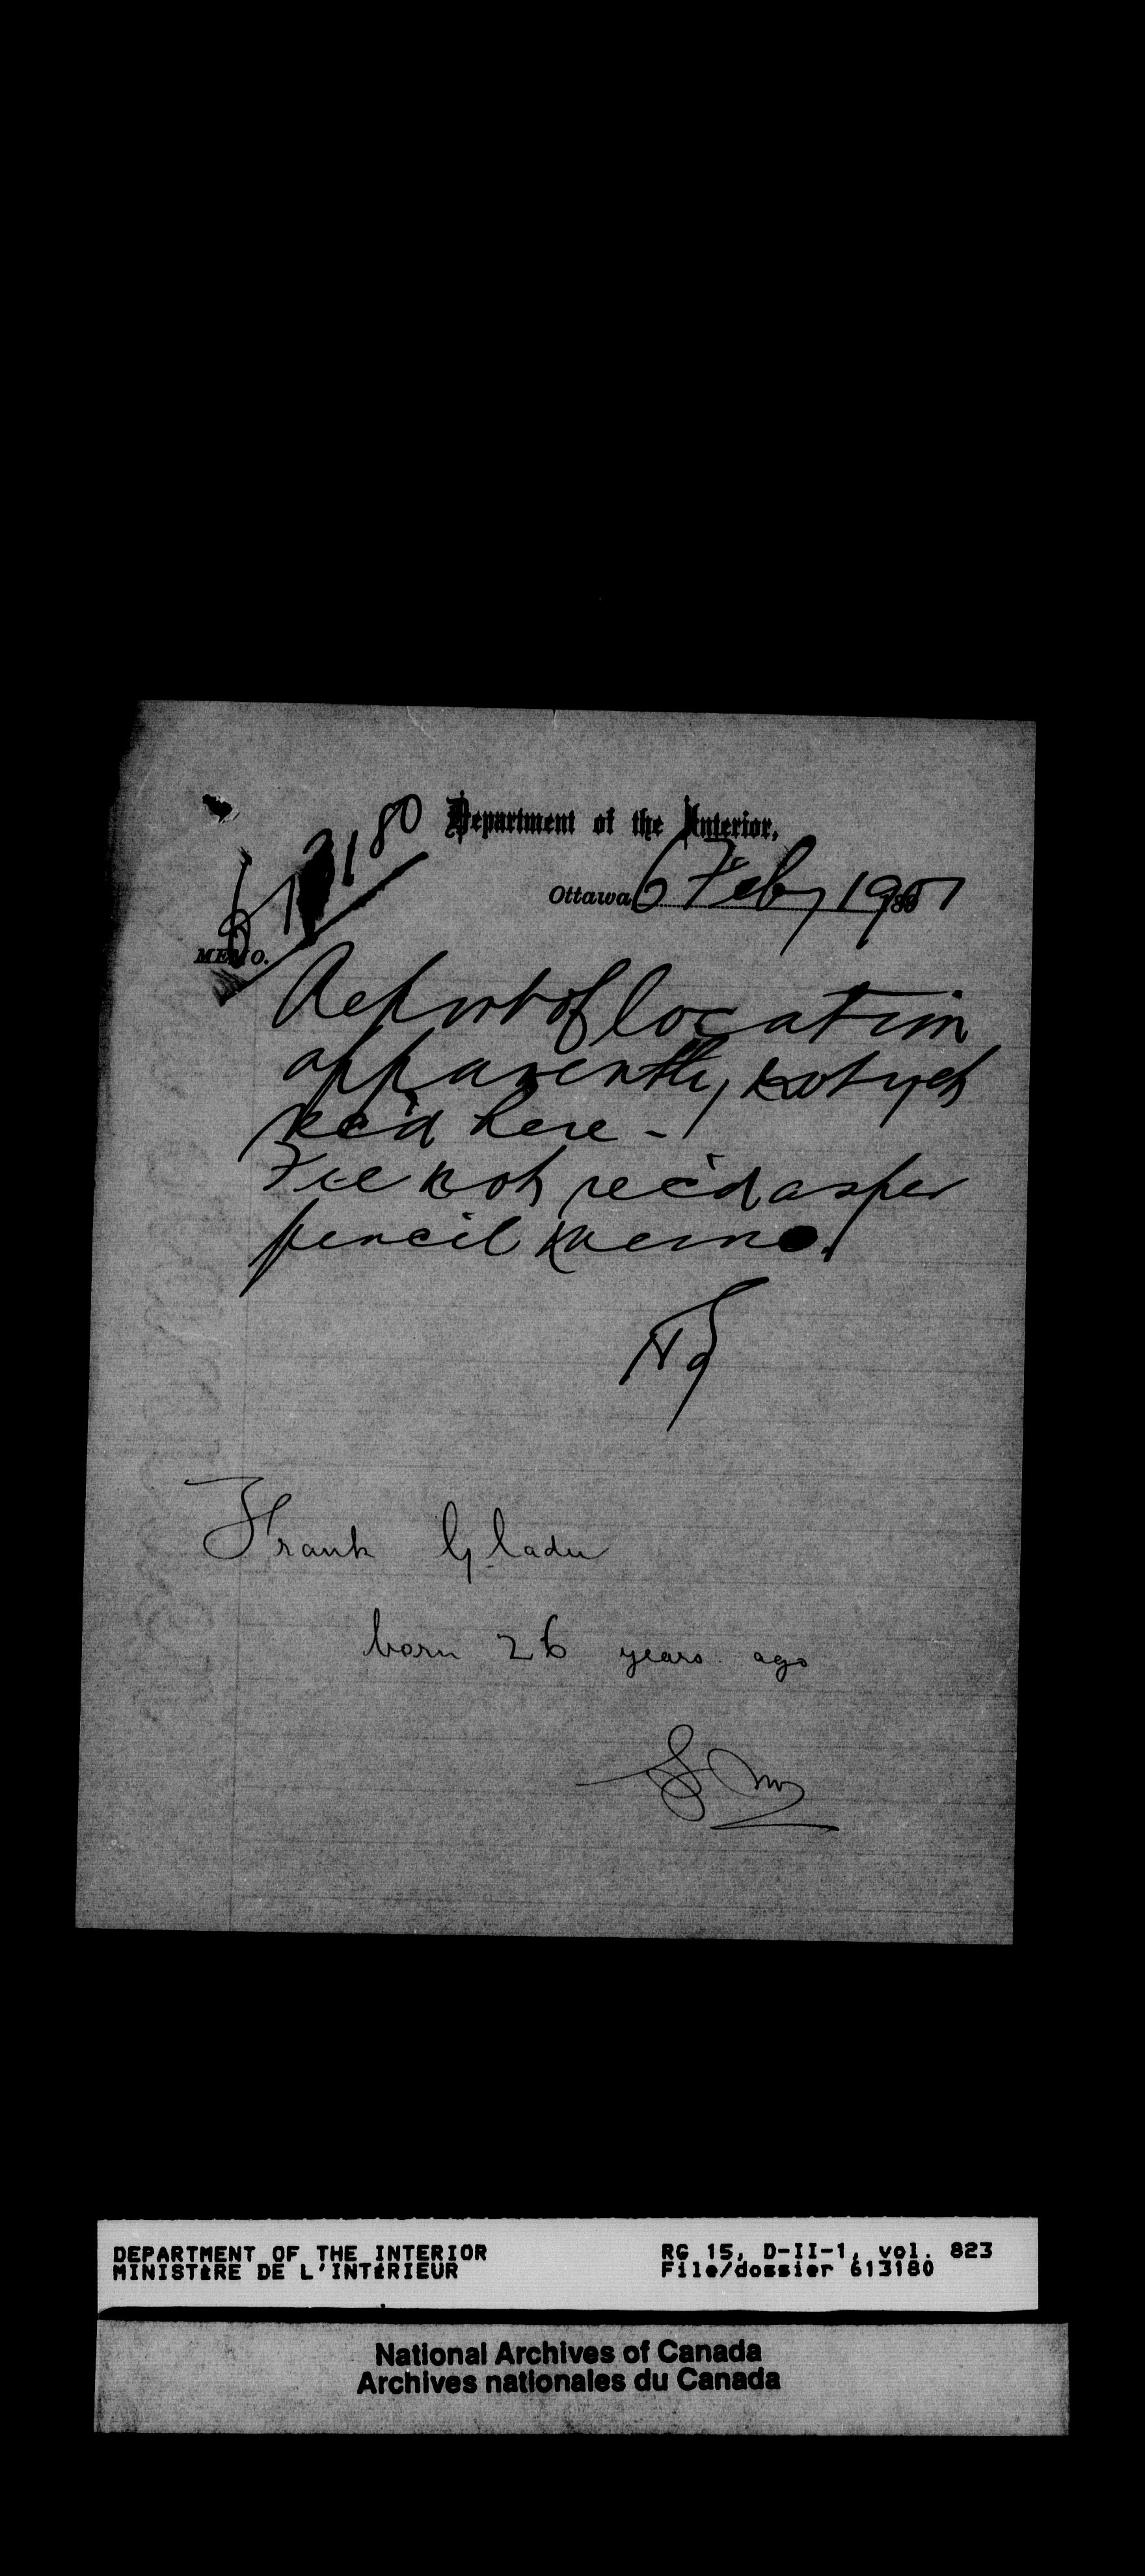 613180
Department of the Interior,
Ottawa, 6 Feby 1901
MEMO.
Report of location
apparently not yet
rec'd here -
Fee not rec'd as per
pencil memo.
Frank Gladu
born 26 years ago
DEPARTMENT OF THE INTERIOR
MINISTÈRE DE L'INTÉRIEUR
RG 15, D-II-1, vol. 823
File/dossier 613180
National Archives of Canada
Archives nationales du Canada